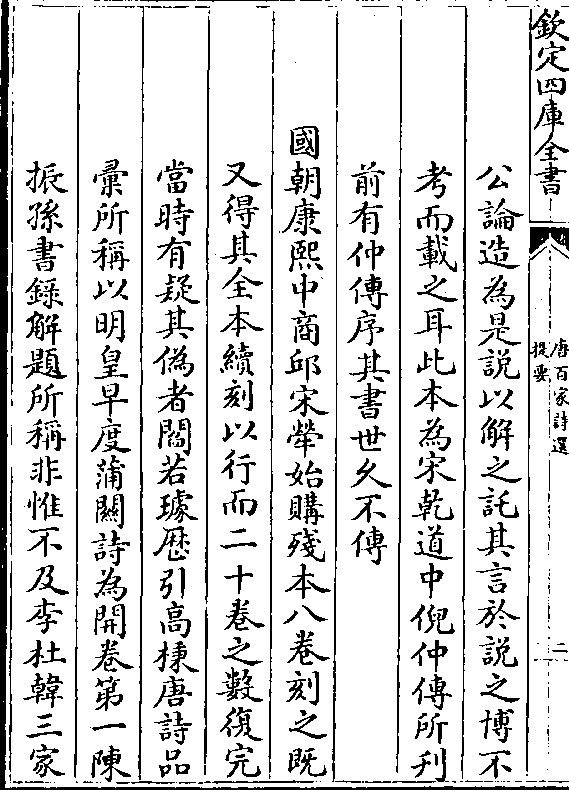 欽定四庫全書
唐百家詩選
提要
二
公論造為是說以解之託其言於說之博不
考而載之耳此本為宋乾道中倪仲傅所刋
前有仲傅序其書世乆不傳
國朝康熙中商邱宋犖始購殘本八卷刻之既
又得其全本續刻以行而二十卷之數復完
當時有疑其偽者閻若璩歴引高棅唐詩品
彚所稱以明皇早度蒲關詩為開卷第一陳
振孫書錄解題所稱非惟不及李杜韓三家